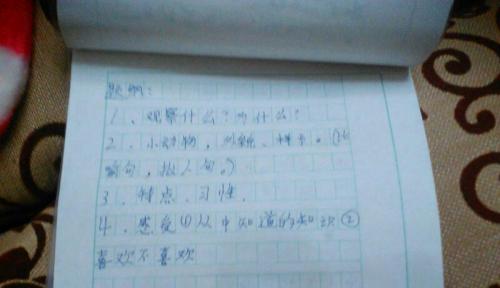 题纲:
1、观察什么?为什么?
2、小动物,外貌、样子。(比
喻句,拟人句。)
3、特点、习性.
4、感受①从中知道的知识②
喜欢不喜欢